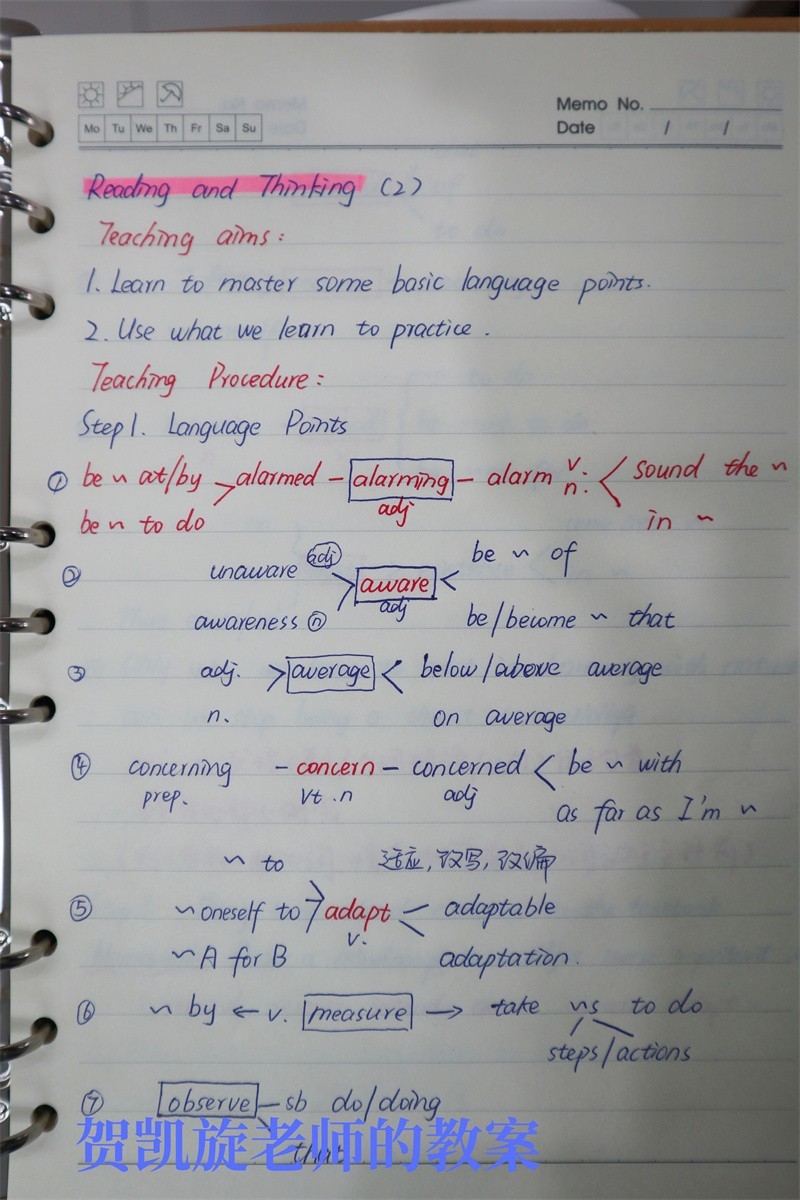 Memo No.
Mo Tu We Th Fr Sa Su
Date / /
Reading and Thinking (2)
Teaching aims:
1. Learn to master some basic language points.
2. Use what we learn to practice.
Teaching Procedure:
Step 1. Language Points
① be ~ at/by > alarmed - alarming - alarm v. n. < sound the ~
be ~ to do adj in ~
② unaware adj > aware < be ~ of
awareness n adj be/become ~ that
③ adj. > average < below/above average
n. on average
④ concerning - concern - concerned < be ~ with
prep. vt. n adj as far as I'm ~
~ to 适应,改写,改编
⑤ ~ oneself to > adapt adaptable
v.
~ A for B adaptation.
⑥ ~ by ← v. measure → take ~s to do
steps/actions
⑦ observe - sb do/doing
that
贺凯旋老师的教案